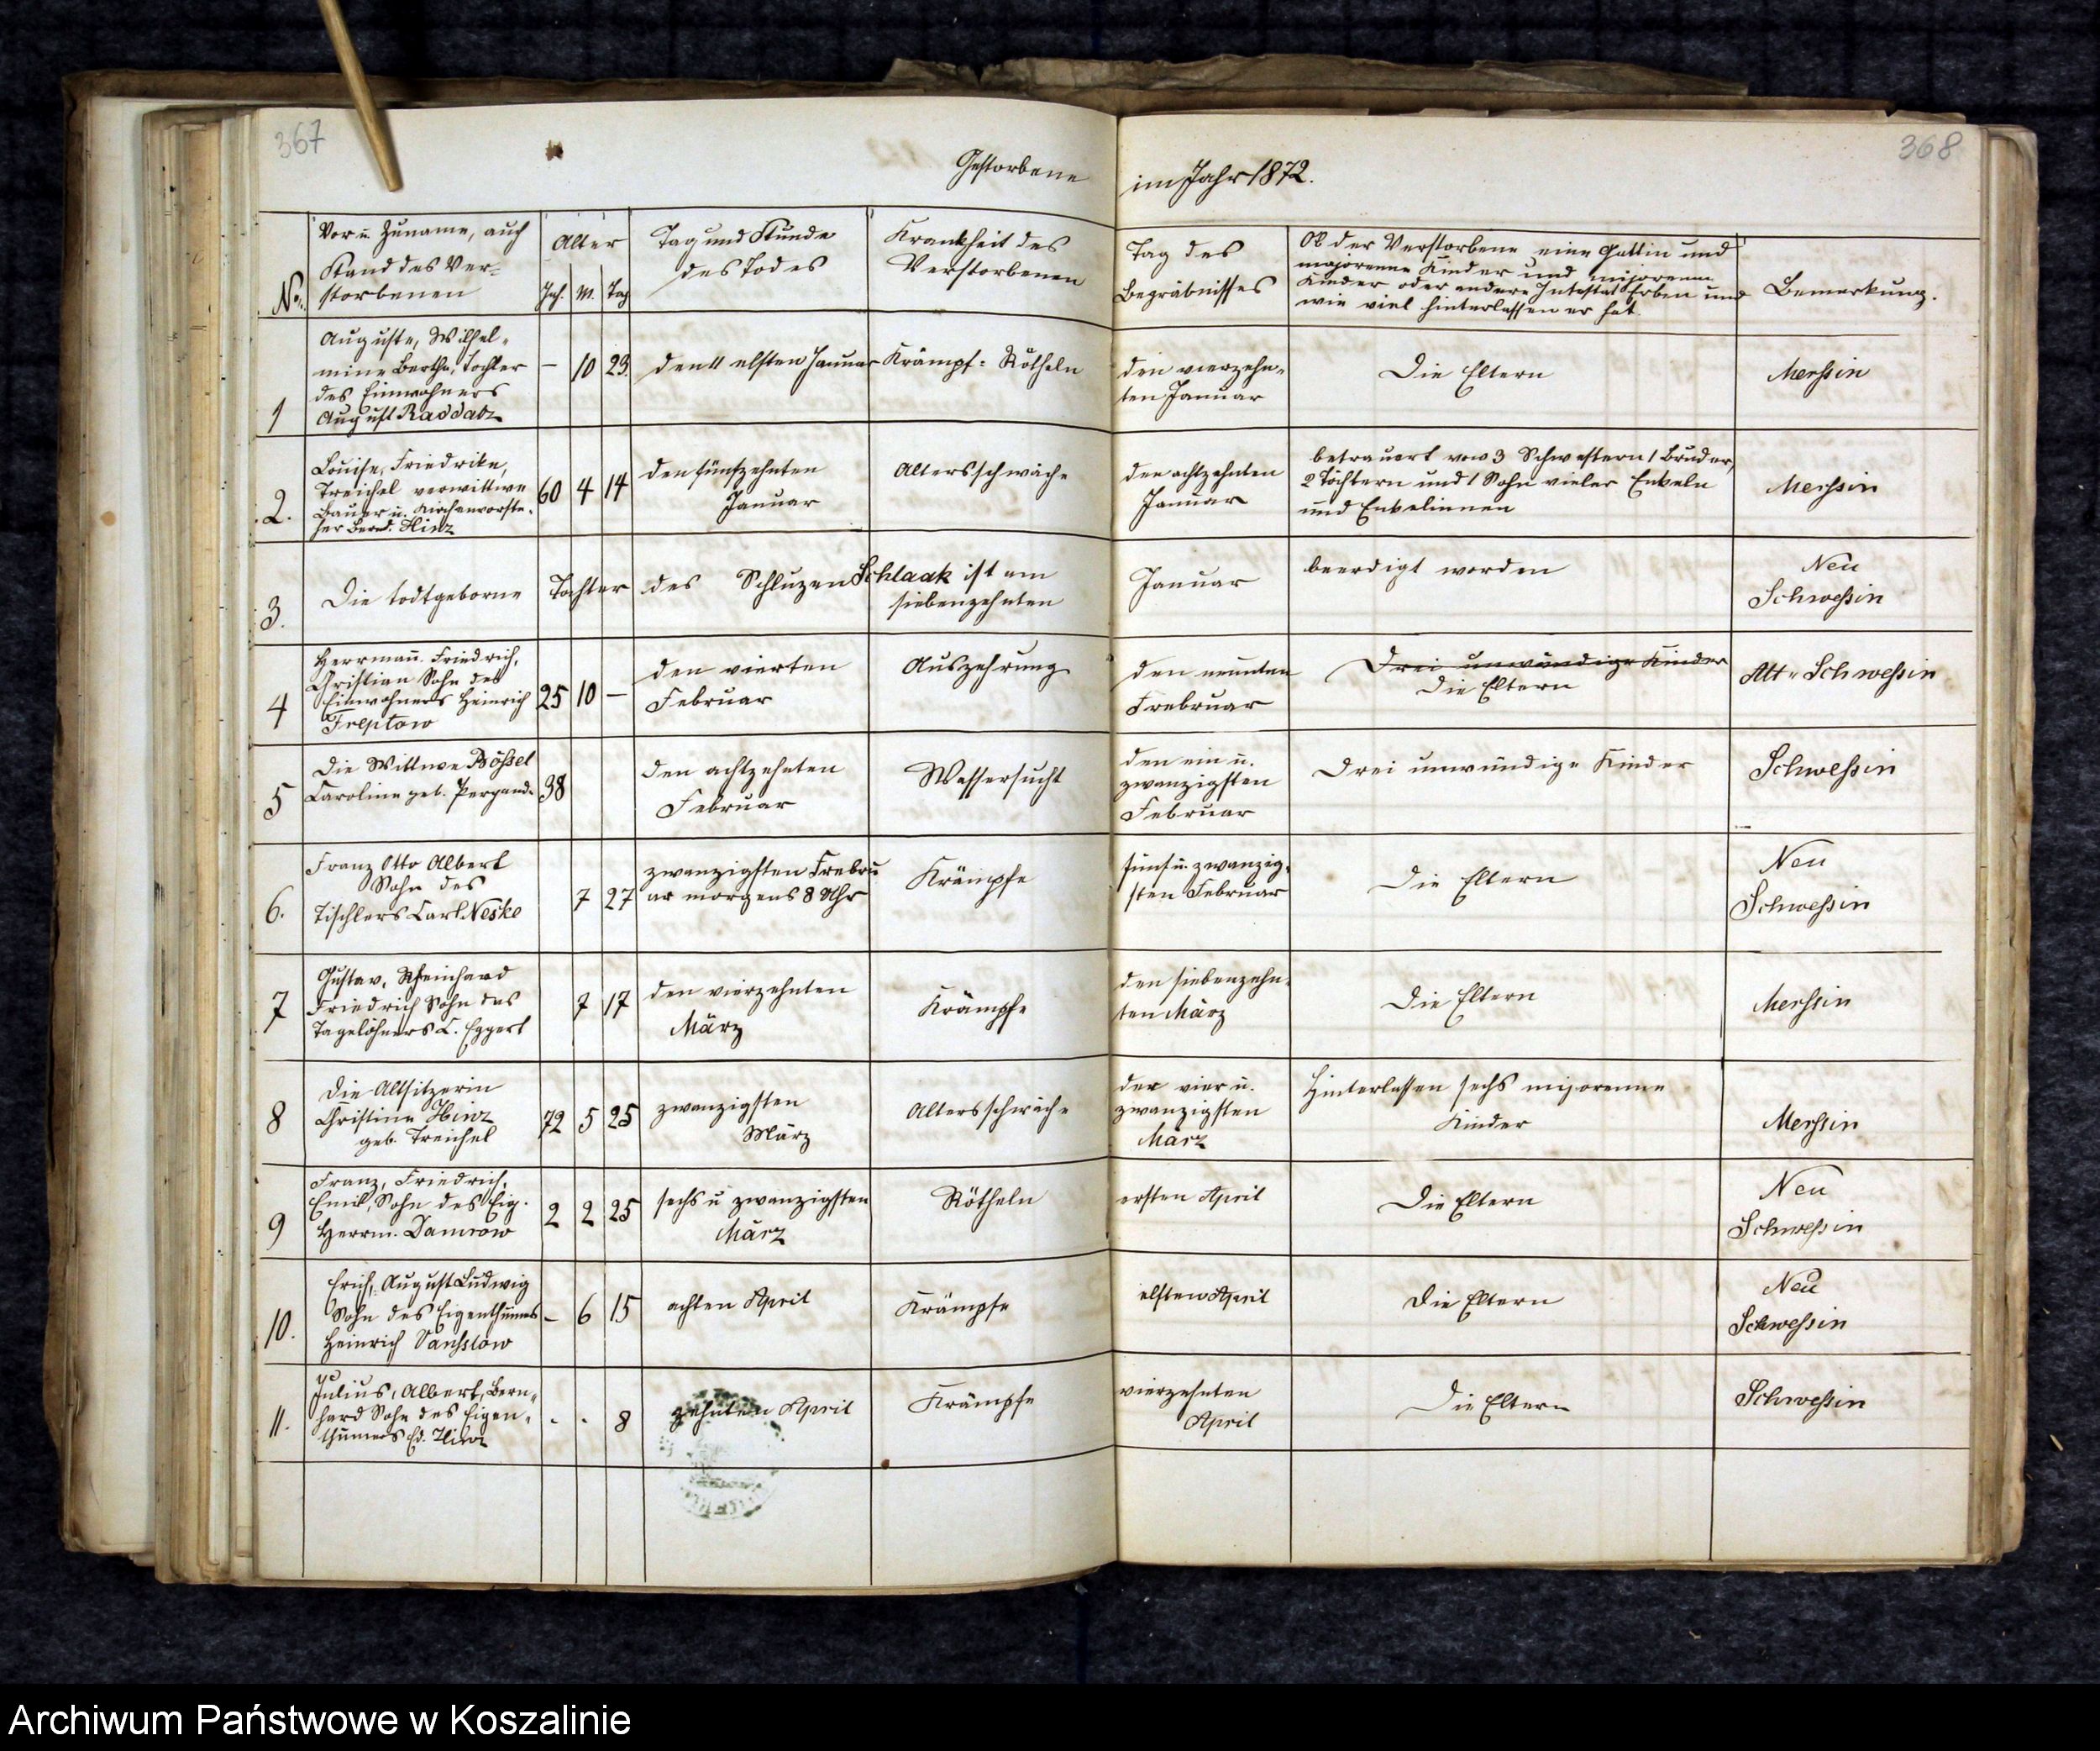 367
368
Gestorbene im Jahr 1872.
No.
Vor u. Zuname, auch
Stand des Ver-
storbenen
Alter
Jah. M. Tag
Tag und Stunde
des Todes
Krankheit des
Verstorbenen
Tag des
Begräbnisses
Ob der Verstorbene eine Gattin und
majorenne Kinder und minorenne
Kinder oder andere Intestat Erben und
wie viel hinterlassen er hat.
Bemerkung.
1
Auguste, Wilhel-
mine Bertha, Tochter
des Einwohners
August Raddatz
— 10 23.
den 11 elften Januar
Krämpf- Rötheln
den vierzehn-
ten Januar
Die Eltern
Merßin
2.
Louise, Friedrike,
Treichel verwittwe
Bauer u. Kirchenvorste-
her Hinz
60 4 14
den fünfzehnten
Januar
Altersschwäche
den achtzehnten
Januar
betrauert von 3 Schwestern 1 Bruder,
2 Töchtern und 1 Sohn vieler Enkeln
und Enkelinnen
Merßin
3.
Die todtgeborne Tochter des Schluzen Schlaak ist am
siebenzehnten
Januar
beerdigt worden
Neu
Schweßin
4
Herrmañ. Friedrich,
Christian Sohn des
Einwohners Heinrich
Treptow
25 10 —
den vierten
Februar
Auszehrung
den neunten
Frebruar
Drei unmündige Kinder
Die Eltern
Alt- Schweßin
5
Die Wittwe Bößel
Caroline geb. Pergande
38
den achtzehnten
Februar
Wassersucht
den ein u.
zwanzigsten
Februar
Drei unmündige Kinder
Schweßin
6.
Franz Otto Albert
Sohn des
Tischlers Carl Neske
7 27
zwanzigsten Frebru
ar morgens 8 Uhr
Krämpfe
fünf u. zwanzig-
sten Februar
Die Eltern
Neu
Schweßin
7
Gustav, Rheinhard
Friedrich Sohn des
Tagelöhners C. Eggert
7 17
den vierzehnten
März
Krämpfe
den siebenzehn-
ten März
Die Eltern
Merßin
8
Die Altsitzerin
Christine Hinz
geb. Treichel
72 5 25
zwanzigsten
März
Altersschwäche
der vier u.
zwanzigsten
März
Hinterlassen sechs mijorenne
Kinder
Merßin
9
Franz, Friedrich,
Emil, Sohn des Eig.
Herrm. Damrow
2 2 25
sechs u zwanzigsten
März
Rötheln
ersten April
Die Eltern
Neu
Schweßin
10.
Erich, August Ludwig
Sohn des Eigenthümes
Heinrich Vanßlow
– 6 15
achten April
Krämpfe
elften April
Die Eltern
Neu
Schweßin
11.
Julius, Albert, Bern-
hard Sohn des Eigen-
thümers Ed.
- - 8
zehnten April
Krämpfe
vierzehnten
April
Die Eltern
Schweßin
Archiwum Państwowe w Koszalinie